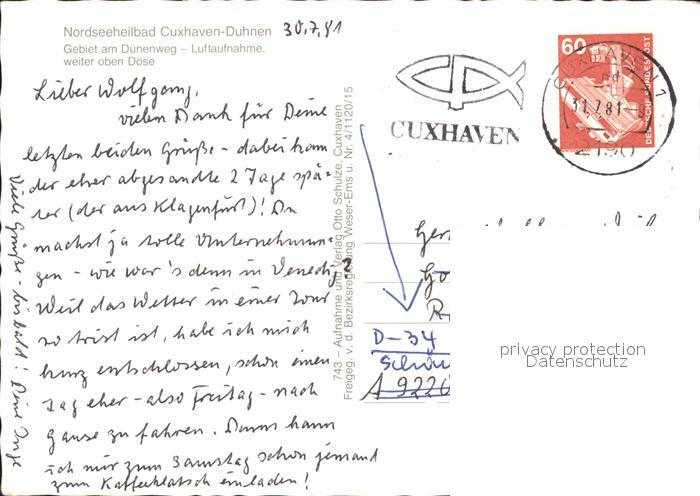 Nordseeheilbad Cuxhaven-Duhnen
Gebiet am Dünenweg – Luftaufnahme.
weiter oben Döse
30.7.81
Lieber Wolfgang,
vielen Dank für Deine
letzten beiden Grüße - dabei kam
der eher abgesandte 2 Tage spä-
ter (der aus Klagenfurt)! Du
machst ja tolle Unternehmun-
gen - wie war's denn in Venedig?
Weil das Wetter in einer Tour
so trist ist, habe ich mich
kurz entschlossen, schon einen
Tag eher - also Freitag - nach
Hause zu fahren. Dann kann
ich mir zum Samstag schon jemand
zum Kaffeeklatsch einladen!
Viele Grüße - bis bald! Deine Inge
743 – Aufnahme und Verlag Otto Schulze, Cuxhaven
Freigeg. v. d. Bezirksregierung Weser-Ems u. Nr. 4/1120/15
CUXHAVEN
60
DEUTSCHE BUNDESPOST
CUXHAVEN 1
31.7.81
2190
D-34
A 9220
privacy protection
Datenschutz